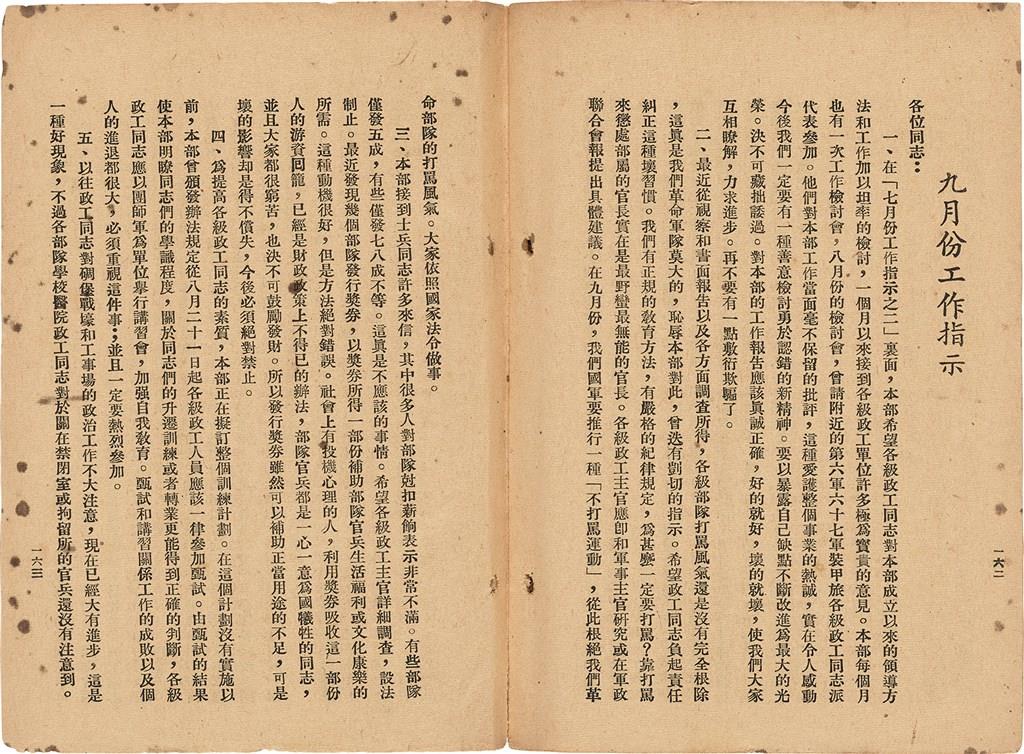 九月份工作指示
各位同志：
一、在「七月份工作指示之二」裏面，本部希望各級政工同志對本部成立以來的領導方
法和工作加以坦率的檢討，一個月以來接到各級政工單位許多極為寶貴的意見。本部每個月
也有一次工作檢討會，八月份的檢討會，曾請附近的第六軍六十七軍裝甲旅各級政工同志派
代表參加。他們對本部工作當面毫不保留的批評，這種愛護整個事業的熱誠，實在令人感動
今後我們一定要有一種善意檢討勇於認錯的新精神。要以暴露自己缺點不斷改進為最大的光
榮。決不可藏拙諉過。對本部的工作報告應該真誠正確，好的就好，壞的就壞，使我們大家
互相瞭解，力求進步。再不要有一點敷衍欺騙了。
二、最近從視察和書面報告以及各方面調查所得，各級部隊打罵風氣還是沒有完全根除
，這真是我們革命軍隊莫大的，恥辱本部對此，曾迭有剴切的指示。希望政工同志負起責任
糾正這種壞習慣。我們有正規的敎育方法，有嚴格的紀律規定，為甚麼一定要打罵？靠打罵
來懲處部屬的官長實在是最野蠻最無能的官長。各級政工主官應卽和軍事主官研究或在軍政
聯合會報提出具體建議。在九月份，我們國軍要推行一種「不打罵運動」，從此根絕我們革
一六二
命部隊的打罵風氣。大家依照國家法令做事。
三、本部接到士兵同志許多來信，其中很多人對部隊尅扣薪餉表示非常不滿。有些部隊
僅發五成，有些僅發七八成不等。這真是不應該的事情。希望各級政工主官詳細調查，設法
制止。最近發現幾個部隊發行獎券，以獎券所得一部份補助部隊官兵生活福利或文化康樂的
所需。這種動機很好，但是方法絕對錯誤。社會上有投機心理的人，利用獎券吸收這一部份
人的游資回籠，已經是財政政策上不得已的辦法，部隊官兵都是一心一意為國犧牲的同志，
並且大家都很窮苦，也決不可鼓勵發財。所以發行獎券雖然可以補助正當用途的不足，可是
壞的影響却是得不償失，今後必須絕對禁止。
四、為提高各級政工同志的素質，本部正在擬訂整個訓練計劃。在這個計劃沒有實施以
前，本部曾頒發辦法規定從八月二十一日起各級政工人員應該一律參加甄試。由甄試的結果
使本部明瞭同志們的學識程度，關於同志們的升遷訓練或者轉業更能得到正確的判斷，各級
政工同志應以團師軍為單位舉行講習會，加强自我敎育。甄試和講習關係工作的成敗以及個
人的進退都很大，必須重視這件事；並且一定要熱烈參加。
五、以往政工同志對碉堡戰壕和工事場的政治工作不大注意，現在已經大有進步，這是
一種好現象，不過各部隊學校醫院政工同志對於關在禁閉室或拘留所的官兵還沒有注意到。
一六三